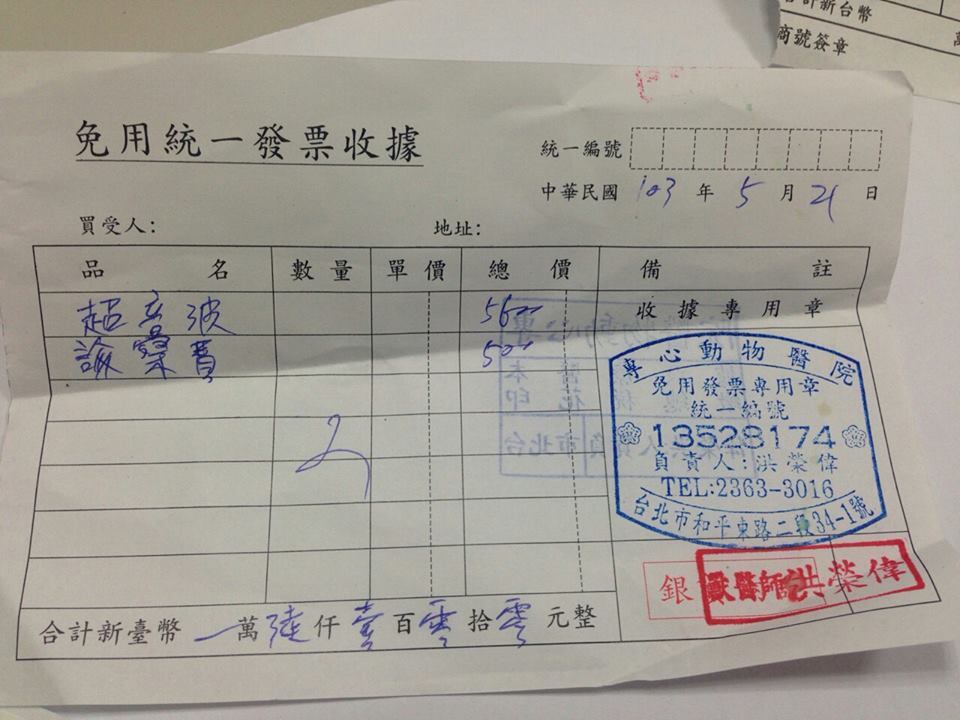 合計新台幣
商號簽章
萬
免用統一發票收據
統一編號
中華民國 103 年 5 月 21 日
買受人: 地址:
品名 數量 單價 總價 備註
超音波 5600 收據專用章
診察費 500
專心動物醫院
免用發票專用章
統一編號
13528174
負責人:洪榮偉
TEL:2363-3016
台北市和平東路二段34-1號
銀 獸醫師洪榮偉
合計新臺幣 萬陸仟壹百零拾零元整